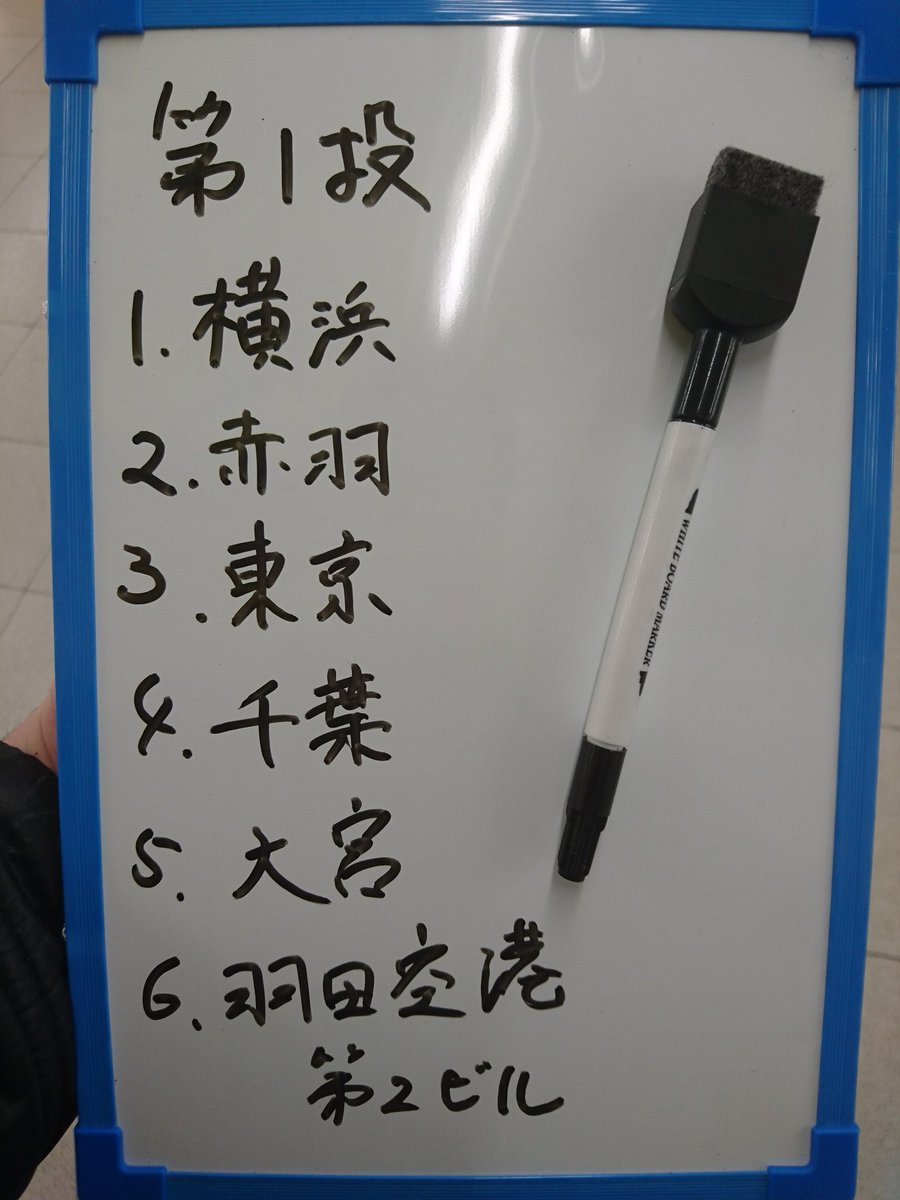 第1投
1.横浜
2.赤羽
3.東京
4.千葉
5.大宮
6.羽田空港
第2ビル
WHITE BOARD MARKER